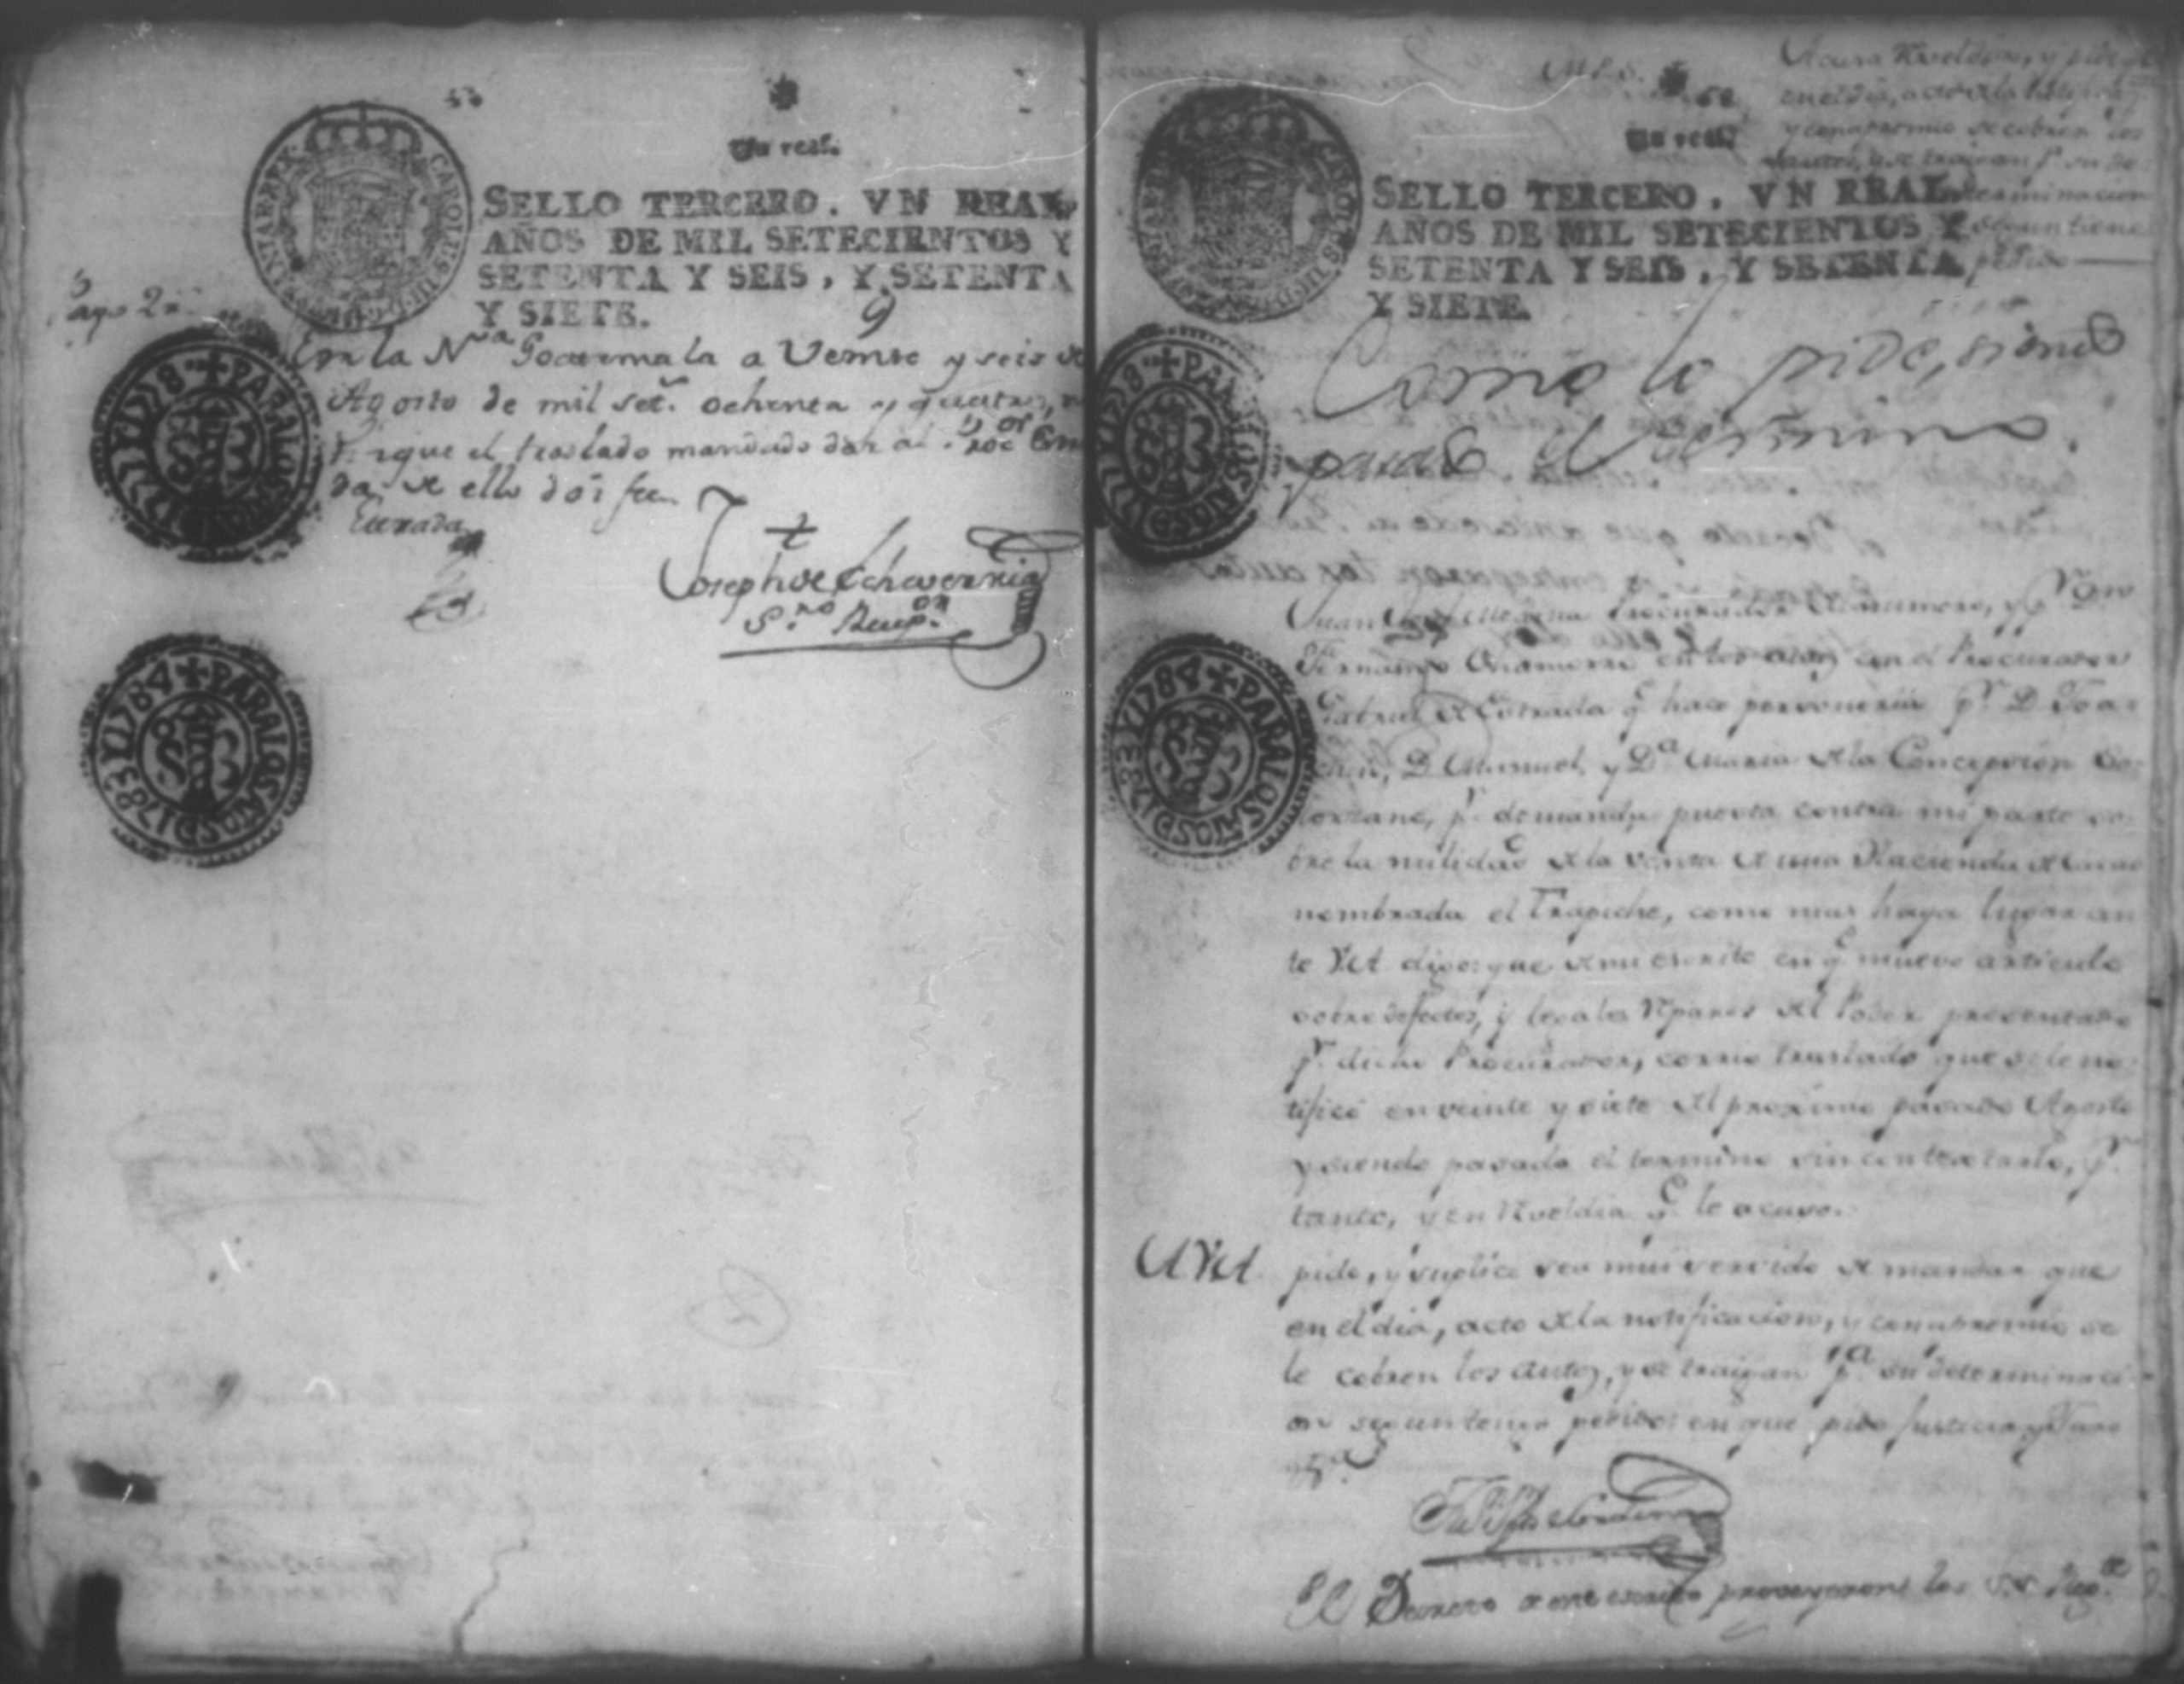 Un real.
SELLO TERCERO. VN REAL
AÑOS DE MIL SETECIENTOS Y
SETENTA Y SEIS, Y SETENTA
Y SIETE.
CAROLUS III D G HISPANIAR REX
Pago 2 r.
PARA LOS AÑOS D 1777 Y 1778
En la N.va Goatemala a Veinte y seis de
Agosto de mil set.s ochenta y quatro,
el traslado mandado dar al
da de ello doi fee
Estrada
Joseph de Echaverria
S.no Recep.or
PARA LOS AÑOS D 1783 Y 1784
M. P. S.
Un real.
Acusa Reveldia, y pide q.e
en el dia, acto de la
y con apremio se cobren los
autos, y se traigan p.a su de
terminacion
segun tiene
pedido
SELLO TERCERO, VN REAL
AÑOS DE MIL SETECIENTOS Y
SETENTA Y SEIS, Y SETENTA
Y SIETE.
Como lo pide, siendo
pasado el termino.
PARA LOS AÑOS D 1777 Y 1778
Juan Procurador del numero, y p.r Dn
Fernando Chamorro en los autos con el Procurador
Gabriel de Estrada q.e hace personeria p.r D. Joa-
chin, D. Manuel, y D.a Maria de la Concepcion So-
lorzano, p.r demanda puesta contra mi parte so-
bre la nulidad de la venta de una Hacienda de
nombrada el Trapiche, como mas haya lugar an-
te VA digo: que de mi escrito en q.e muevo articulo
sobre defectos, y legales reparos del Poder presentado
p.r dicho Procurador, corrio traslado que se le no-
tificó en veinte y siete del proximo pasado Agosto
y siendo pasado el termino sin contextarlo, p.r
tanto, y en Reveldia q.e le acuso.
A VA pido, y suplico sea mui servido de mandar que
en el dia, acto de la notificacion, y con apremio se
le cobren los autos, y se traigan p.a su determinaci-
on segun tengo pedido: en que pido Justicia y Juro
PARA LOS AÑOS D 1783 Y 1784
El Decreto de este escrito proveyeron los S.S. Reg.te